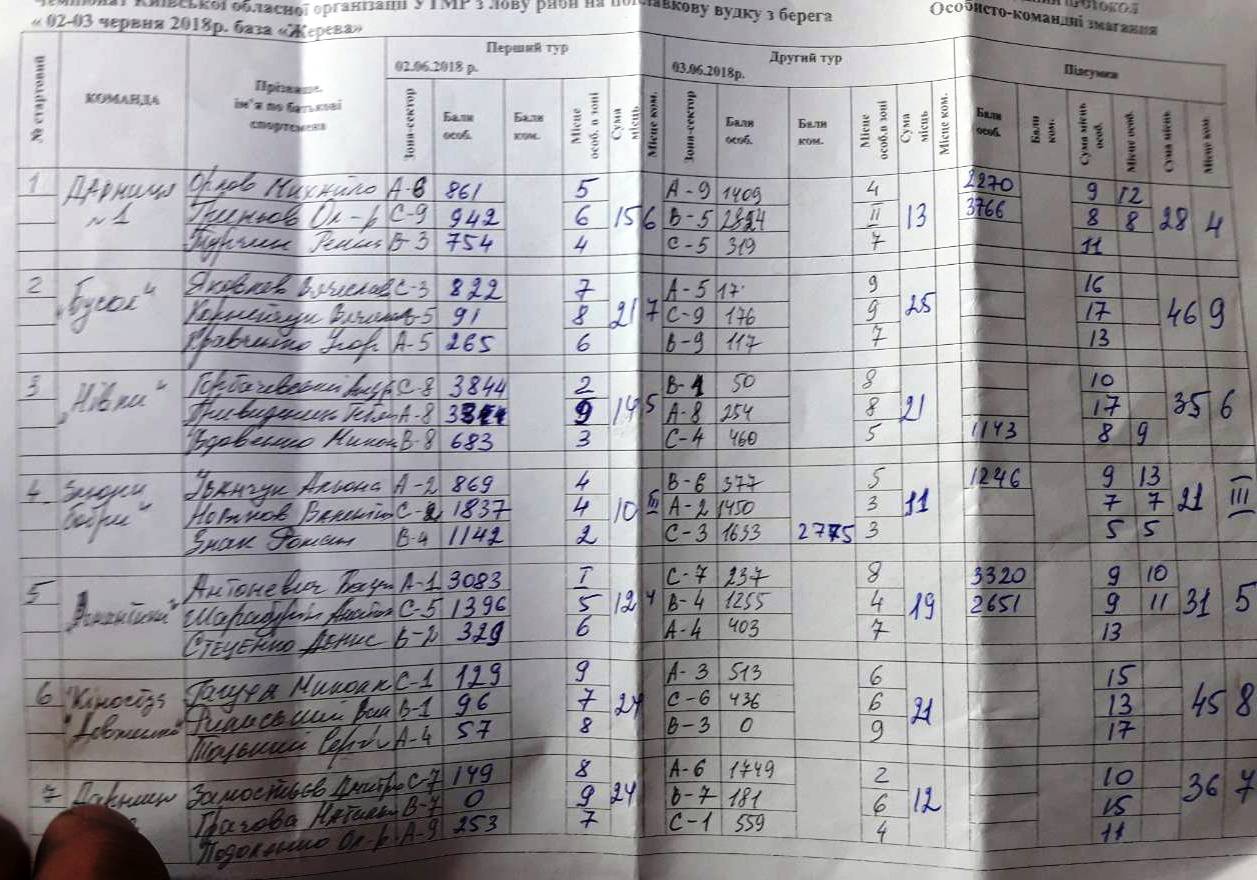 Київської обласної організації УТМР з лову риби на поплавкову вудку з берега
Особисто-командні змагання
« 02-03 червня 2018р. база «Жерева»
№ стартовий КОМАНДА Прізвище, ім'я по батькові спортсмена Перший тур 02.06.2018 р. Другий тур 03.06.2018р. Підсумки
Зона-сектор Бали особ. Бали ком. Місце особ. в зоні Сума місць Місце ком. Зона-сектор Бали особ. Бали ком. Місце особ. в зоні Сума місць Місце ком. Бали особ. Бали ком. Сума місць особ. Місце особ. Сума місць Місце ком.
1 Дарниця Орлов Михайло А-6 861 5 А-9 1409 4 2270 9 12
№1 Ол-р С-9 942 6 15 6 В-5 2824 II 13 3766 8 8 28 4
В-3 754 4 С-5 319 7 11
2 Яковлев Вячеслав С-3 822 7 А-5 17 9 16
„Бусол" 91 8 21 7 С-9 176 9 25 17 46 9
Кравченко Ігор А-5 265 6 В-9 117 7 13
3 С-8 3844 2 В-1 50 8 10
„Нівки" А-8 9 14 5 А-8 254 8 21 17 35 6
Вдовенко В-8 683 3 С-4 460 5 1143 8 9
4 Іванчук Альона А-2 869 4 В-6 377 5 1246 9 13
бобри" С-2 1837 4 10 III А-2 1450 3 11 7 7 21 III
Знак Роман В-4 1142 2 С-3 1633 2775 3 5 5
5 Антоневич А-1 3083 I С-7 237 8 3320 9 10
С-5 1396 5 12 4 В-4 1255 4 19 2651 9 11 31 5
Стеценко Денис В-2 329 6 А-4 403 7 13
6 С-1 129 9 А-3 513 6 15
В-1 96 7 24 С-6 436 6 21 13 45 8
Сергій А-4 57 8 В-3 0 9 17
7 Дмитро С-7 149 8 А-6 1749 2 10
Грачова Наталія В-7 0 9 24 В-7 181 6 12 15 36 7
Ол-р А-9 253 7 С-1 559 4 11